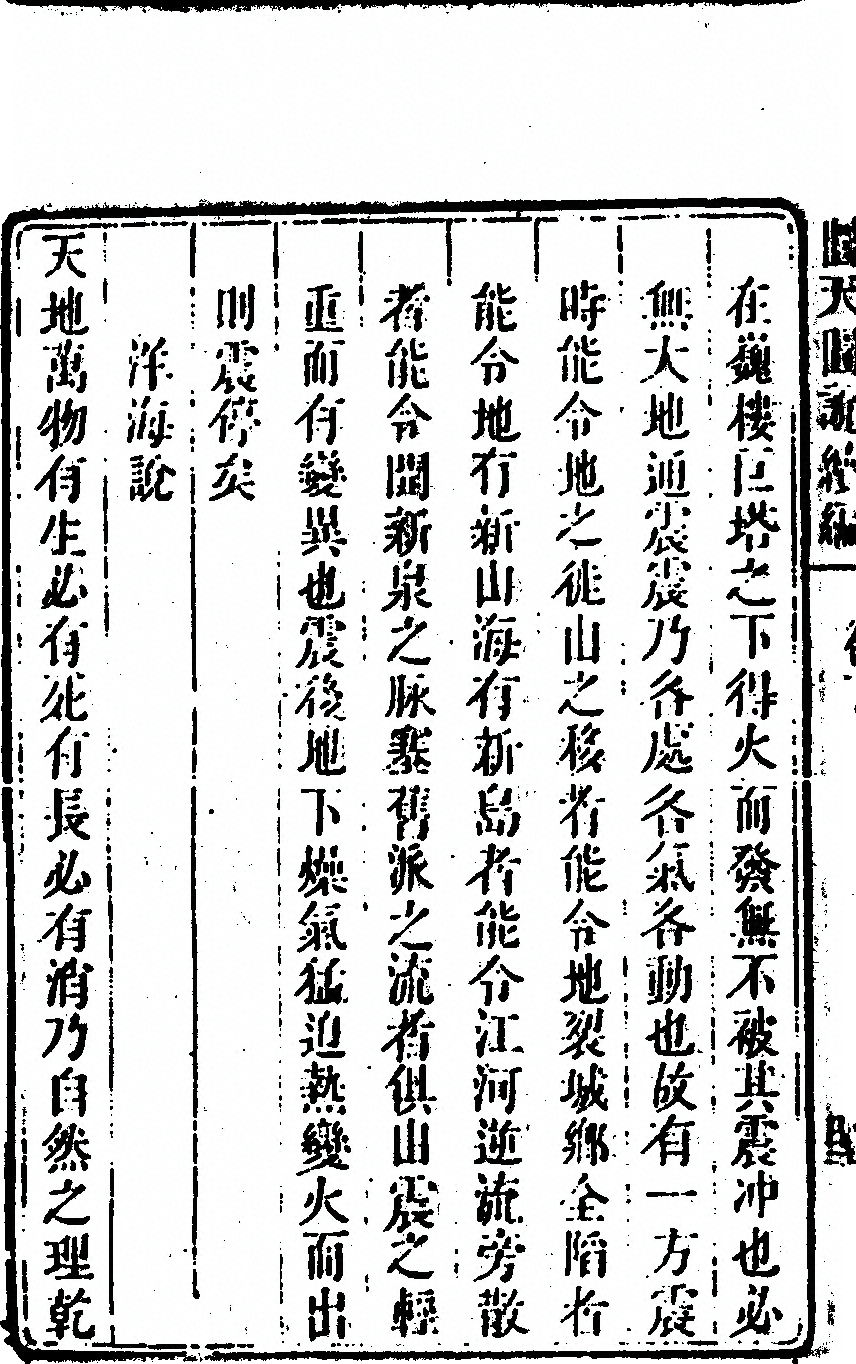 圜天圖說續編
在巍樓巨塔之下得火而發無不被其震冲也必
無大地通震震乃各處各氣各動也故有一方震
時能令地之徙山之移者能令地裂城鄉全陷者
能令地有新山海有新島者能令江河逆流旁散
者能令開新泉之脉塞舊派之流者俱由震之輕
重而有變異也震後地下燥氣猛迫熱變火而出
則震停矣
洋海說
天地萬物有生必有死有長必有消乃自然之理乾